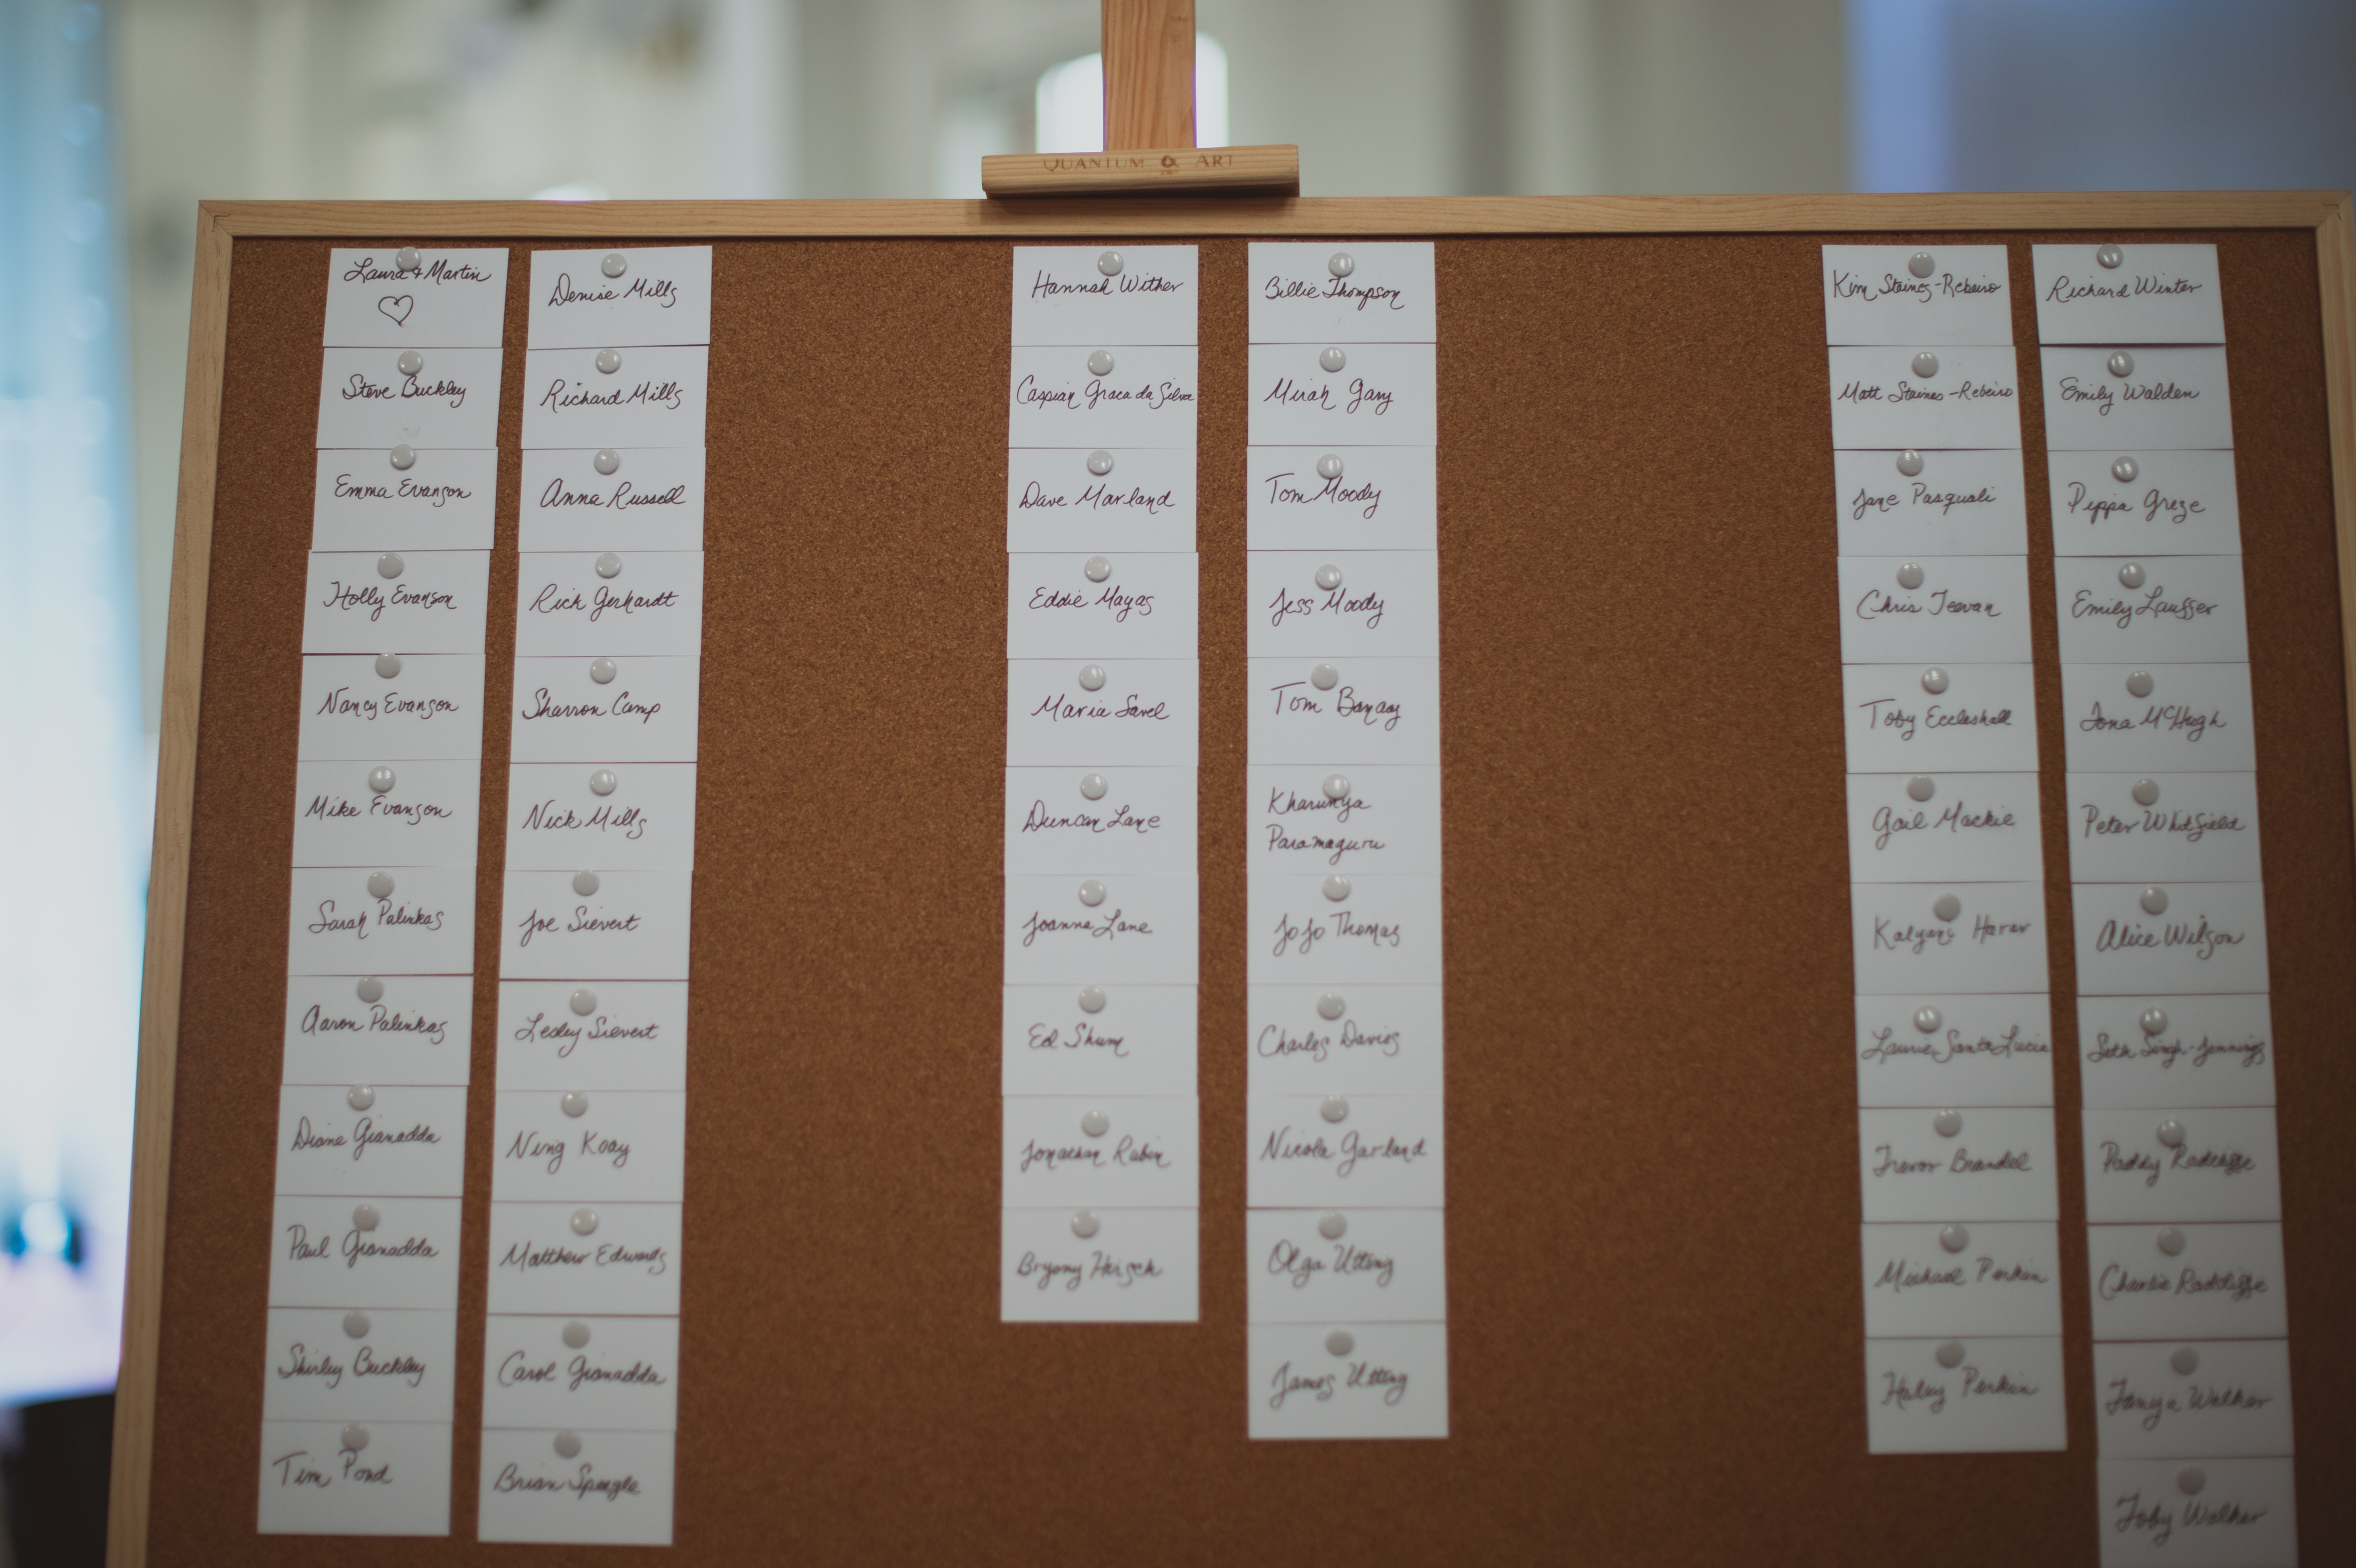 QUANTUM ART
Laura & Martin
♡
Steve Buckley
Emma Evanson
Holly Evanson
Nancy Evanson
Mike Evanson
Sarah Palinkas
Aaron Palinkas
Diane Gianadda
Paul Gianadda
Shirley Buckley
Tim Pond
Denise Mills
Richard Mills
Anna Russell
Rick Gerhardt
Sharron Camp
Nick Mills
Joe Sievert
Lesley Sievert
Ning Koay
Matthew Edwards
Carol Gianadda
Brian Speegle
Hannah Wither
Caspian Graca da Silva
Dave Marland
Eddie Mayas
Maria Savel
Duncan Lane
Joanna Lane
Ed Shum
Jonathan Rubin
Bryony Hirsch
Billie Thompson
Mirah Gary
Tom Moody
Jess Moody
Tom
Kharunya
Paramaguru
JoJo Thomas
Charles Davies
Nicola Garland
Olga Utting
James Utting
Kim Staines-Rebeiro
Matt Staines-Rebeiro
Jane Pasquali
Chris Teevan
Toby Eccleshall
Gail Mackie
Kalyani
Laurie Santa Lucia
Trevor Brandel
Michael Perkin
Haley Perkin
Richard Winter
Emily Walden
Pippa Greze
Emily
Iona McHugh
Peter Whitfield
Alice Wilson
Seth Singh-Jennings
Paddy Radcliffe
Charlie Radcliffe
Tanya Walker
Toby Walker